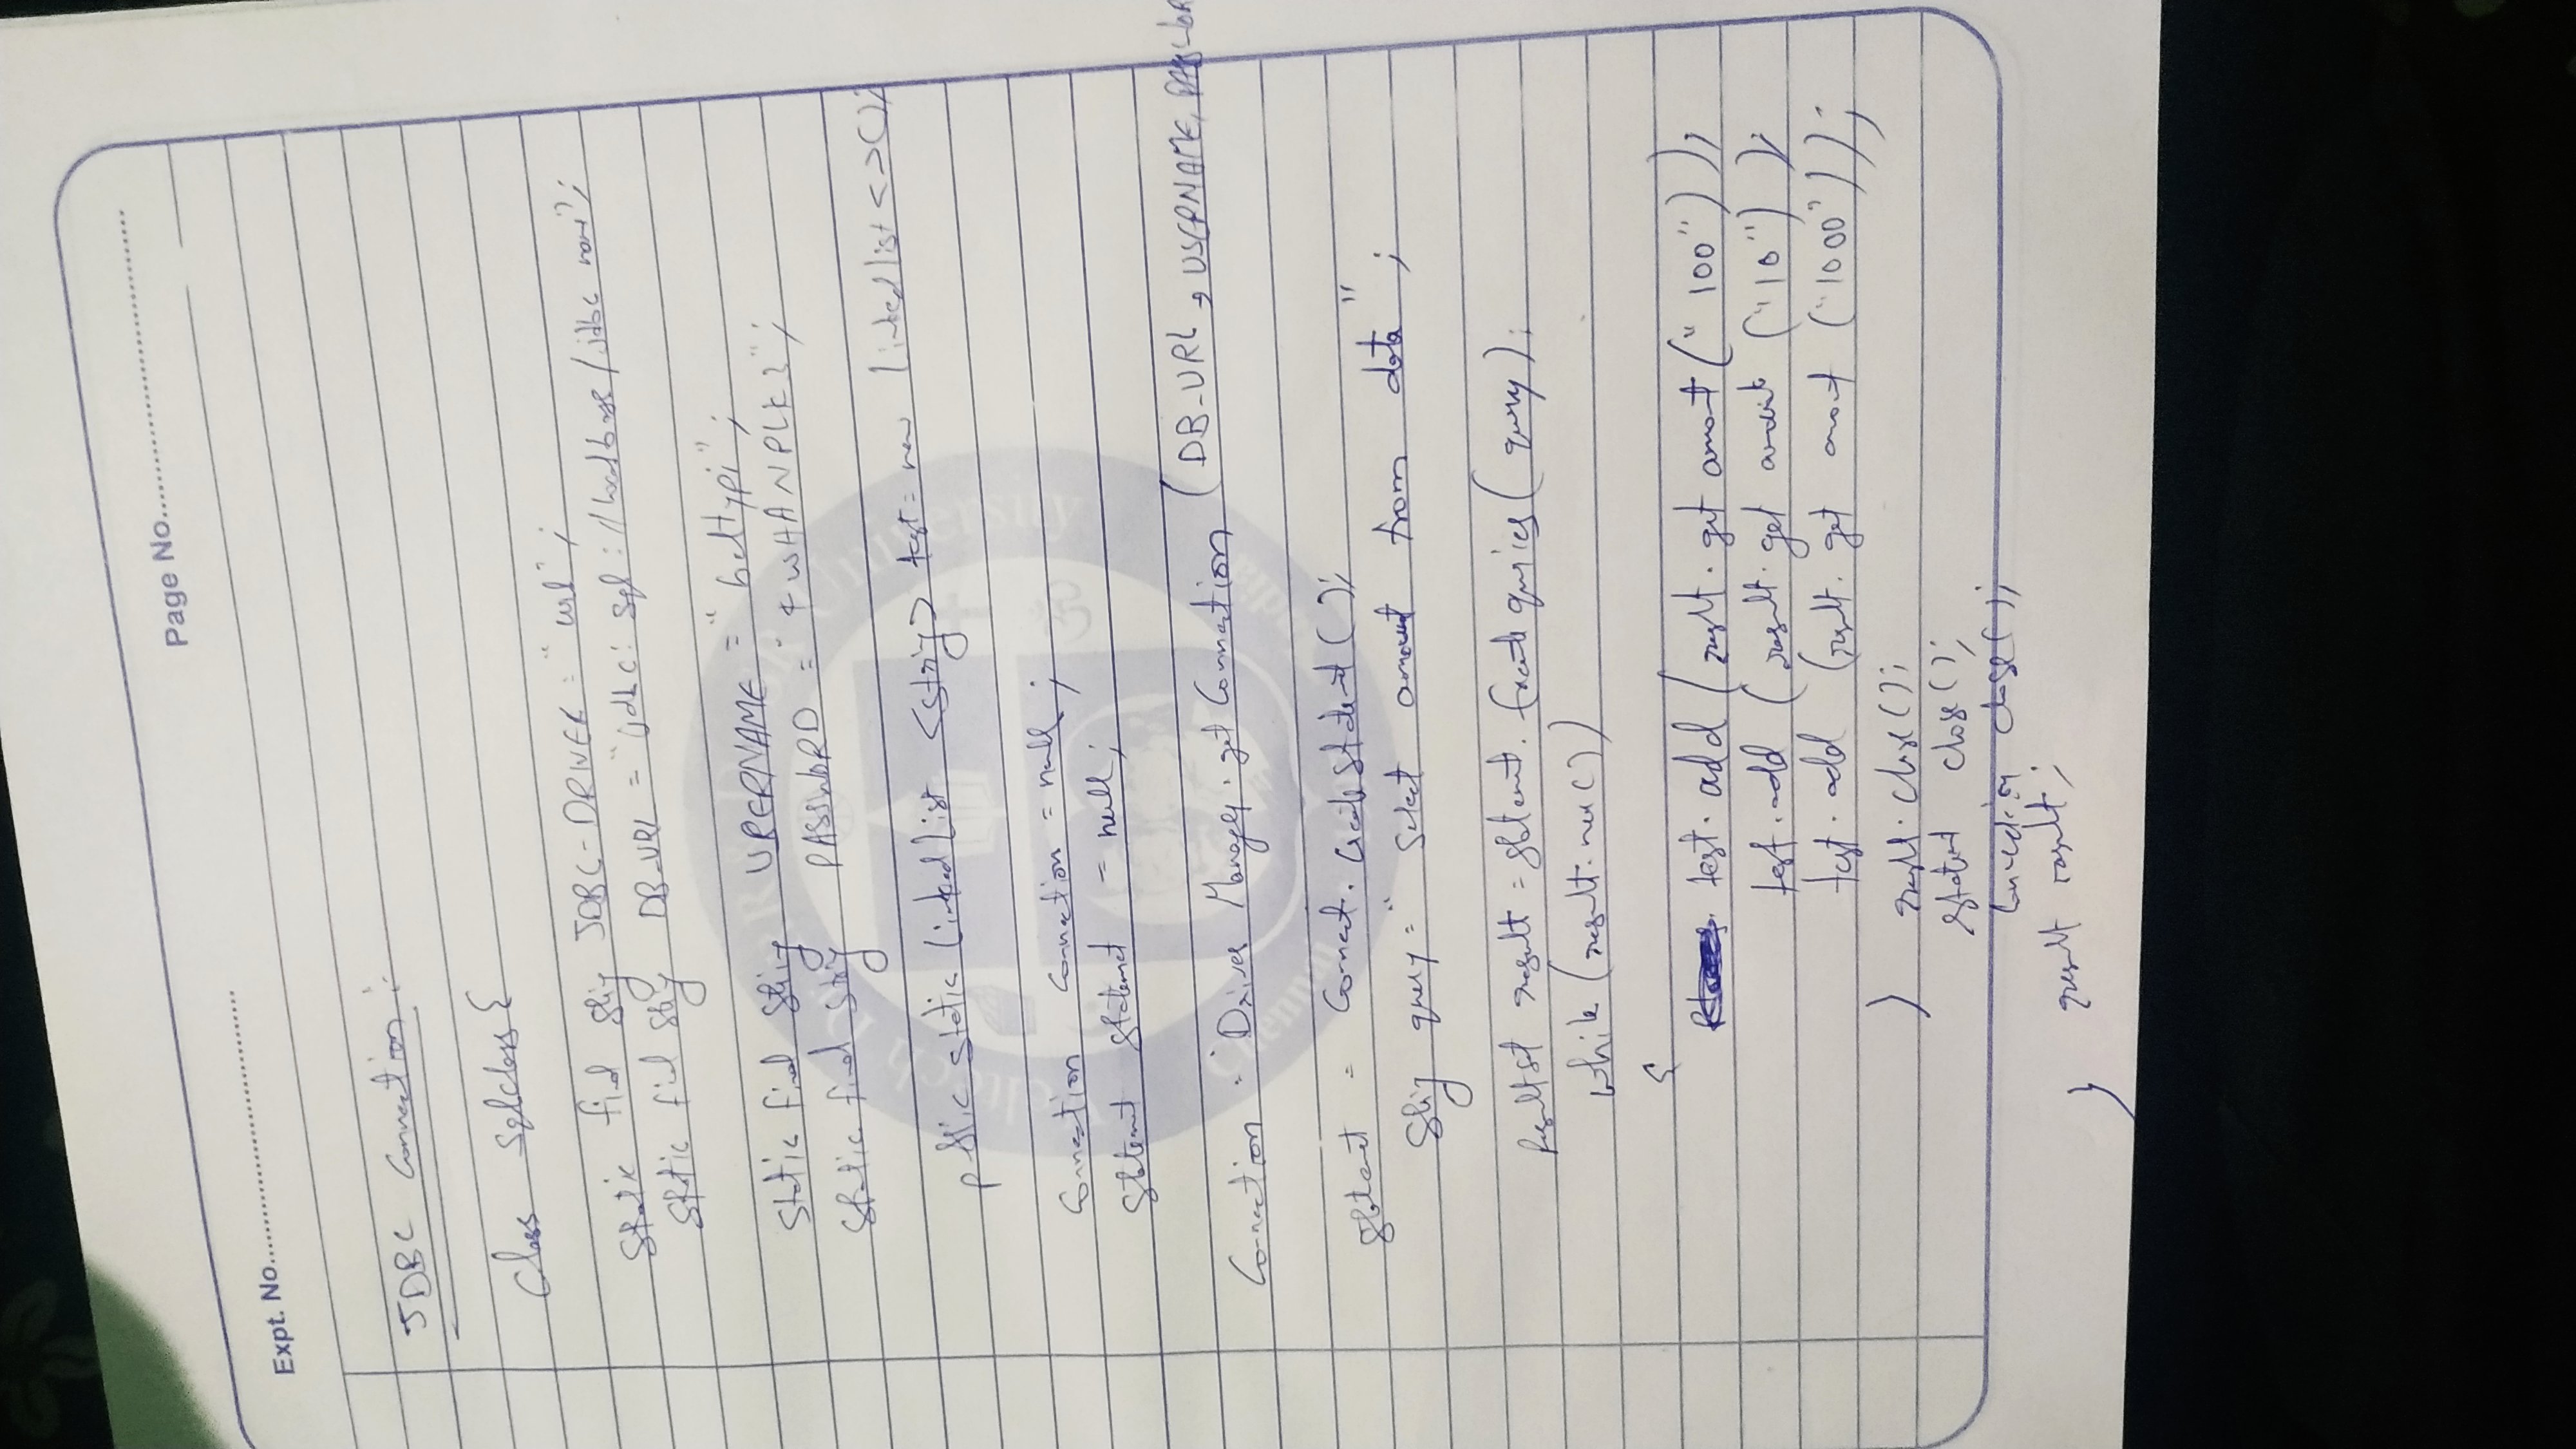 Page No.
Expt. No.
JDBC Connection :-
Class Sqlclass {
Static final String JDBC-DRIVER = "url" ;
Static final String DB-URL = "jdbc: sql : // / jdbc name";
Static final String USERNAME = " " ;
Static final String PASSWORD = " " ;
public static linked list <string> test = new linked list < > ( );
Connection Connection = null ;
Statement Statement = null ;
Connection = Driver Manager . get Connection ( DB-URL , USERNAME,
Statement = Connect. Create Statement ( );
String query = " Select amount from data " ;
Resultset result = Statement. Execute queries ( query ) ;
while ( result. nex ( ) )
{
test . add ( result . get amount ( " 100 " ) ) ;
test . add ( result . get amount ( "10" ) ) ;
test . add ( result . get amount ( "1000" ) ) ;
} result . close ( ) ;
Statement close ( ) ;
Connection close ( ) ;
} result result ;